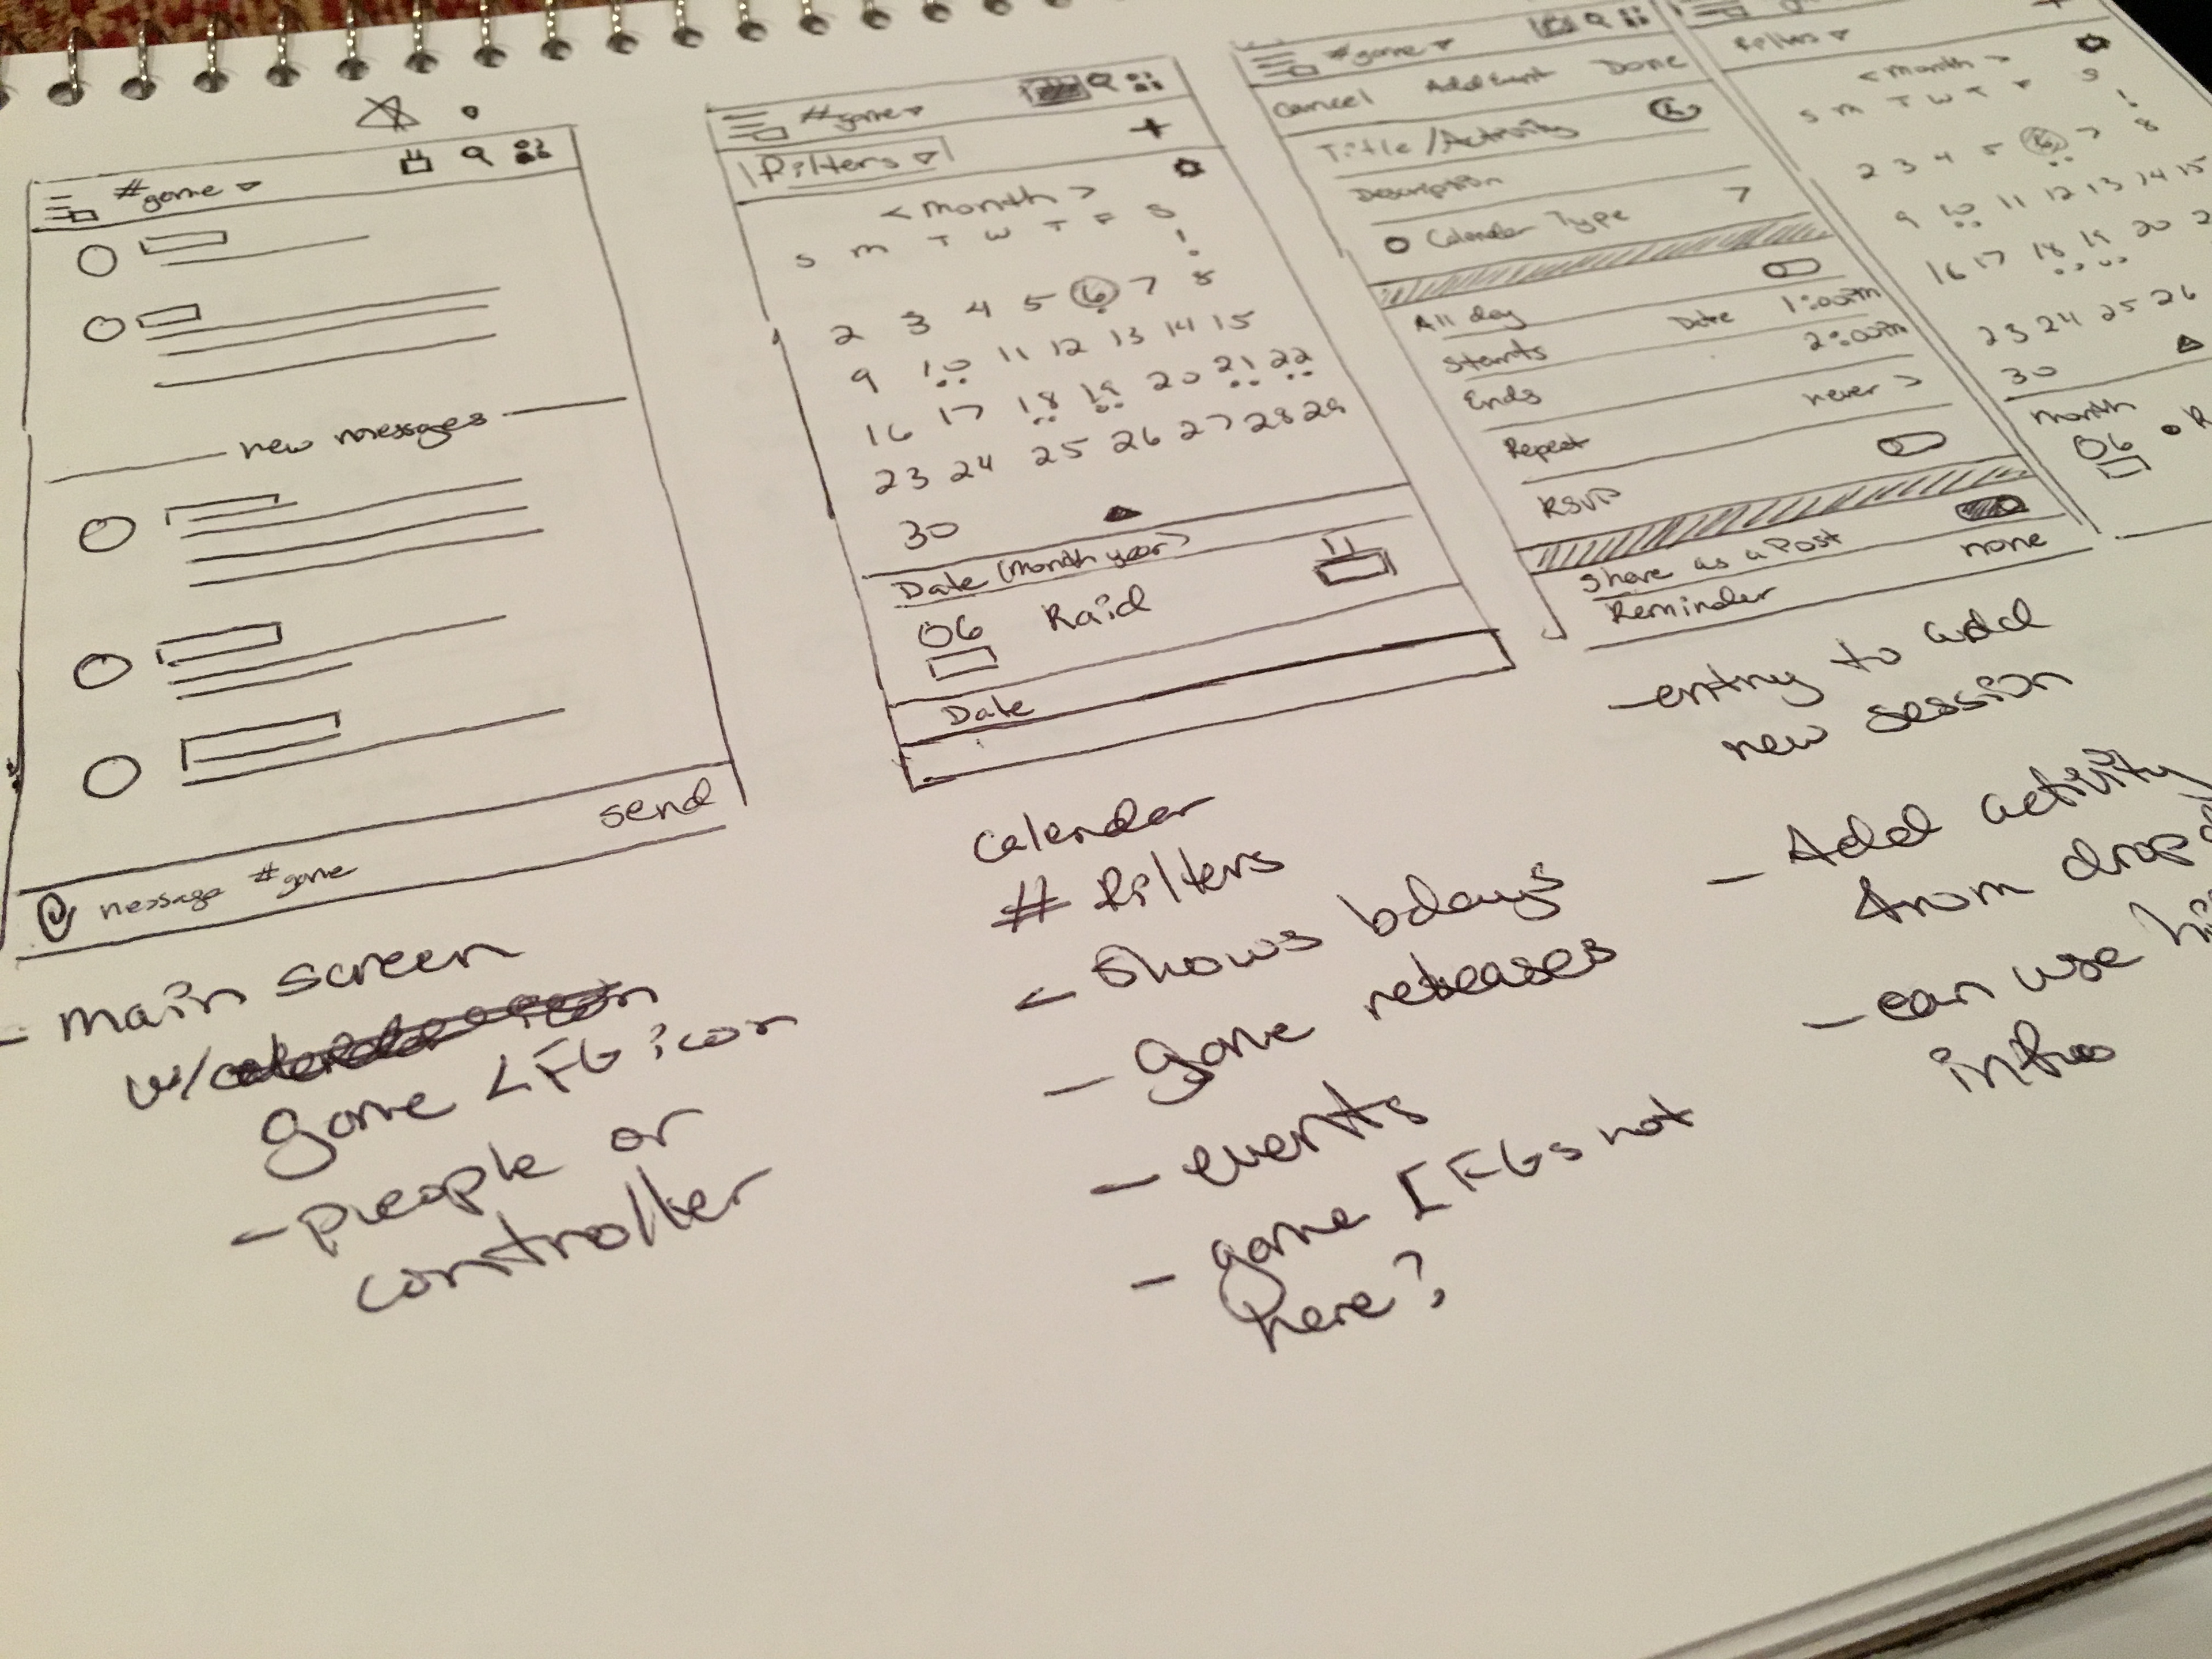 #game
new messages
send
message #game
- main screen
w/
game LFG icon
- people or
controller
#game
Filters
+
< month >
S M T W T F S
1
2 3 4 5 6 7 8
9 10 11 12 13 14 15
16 17 18 19 20 21 22
23 24 25 26 27 28 29
30
Date (month year)
06 Raid
Date
calendar
# filters
- shows bdays
- game releases
- events
- game LFGs not
here?
#game
Cancel Add Event Done
Title/Activity
Description
Calendar Type >
All day
Starts Date 1:00PM
Ends 2:00PM
Repeat never >
RSVP
Share as a Post
Reminder none
- entry to add
new session
- Add activity
from
- can use
info
Filters
< month >
S M T W T F S
1
2 3 4 5 6 7 8
9 10 11 12 13 14 15
16 17 18 19 20
23 24 25 26
30
month
06